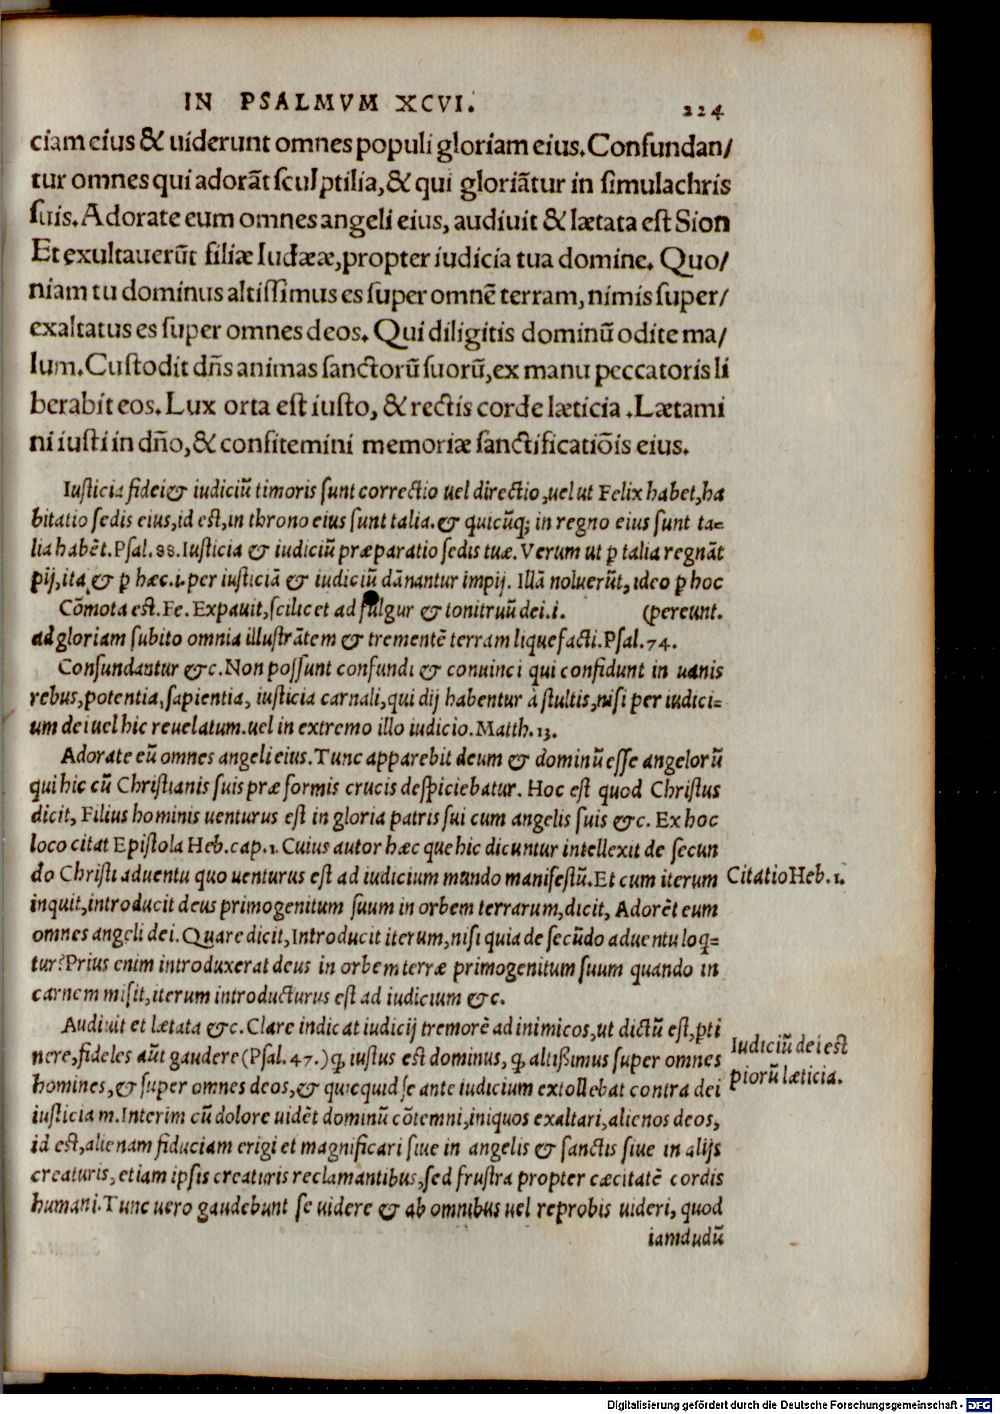 IN PSALMVM XCVI. 224
ciam eius & uiderunt omnes populi gloriam eius. Confundan/
tur omnes qui adorāt sculptilia, & qui gloriātur in simulachris
suis. Adorate eum omnes angeli eius, audiuit & lætata est Sion
Et exultauerūt filiæ Iudææ, propter iudicia tua domine. Quo/
niam tu dominus altissimus es super omnē terram, nimis super/
exaltatus es super omnes deos. Qui diligitis dominū odite ma/
lum. Custodit dn̄s animas sanctorū suorū, ex manu peccatoris li
berabit eos. Lux orta est iusto, & rectis corde læticia. Lætami
ni iusti in dn̄o, & confitemini memoriæ sanctificatiōis eius.
Iusticia fidei & iudiciū timoris sunt correctio uel directio, uel ut Felix habet, ha
bitatio sedis eius, id est, in throno eius sunt talia. & quicūq; in regno eius sunt ta=
lia habēt. Psal. 88. Iusticia & iudiciū præparatio sedis tuæ. Verum ut ꝑ talia regnāt
pij, ita & ꝑ hæc. i. per iusticiā & iudiciū dānantur impij. Illā noluerūt, ideo ꝑ hoc
Cōmota est. Fe. Expauit, scilicet ad fulgur & tonitruū dei. i. (pereunt.
ad gloriam subito omnia illustrātem & trementē terram liquefacti. Psal. 74.
Confundantur &c. Non possunt confundi & conuinci qui confidunt in uanis
rebus, potentia, sapientia, iusticia carnali, qui dij habentur à stultis, nisi per iudici=
um dei uel hic reuelatum. uel in extremo illo iudicio. Matth. 13.
Adorate eū omnes angeli eius. Tunc apparebit deum & dominū esse angelorū
qui hic cū Christianis suis præ formis crucis despiciebatur. Hoc est quod Christus
dicit, Filius hominis uenturus est in gloria patris sui cum angelis suis &c. Ex hoc
loco citat Epistola Heb. cap. 1. Cuius autor hæc que hic dicuntur intellexit de secun
do Christi aduentu quo uenturus est ad iudicium mundo manifestū. Et cum iterum
Citatio Heb. 1.
inquit, introducit deus primogenitum suum in orbem terrarum, dicit, Adorēt eum
omnes angeli dei. Quare dicit, Introducit iterum, nisi quia de secūdo aduentu loq̄=
tur? Prius enim introduxerat deus in orbem terræ primogenitum suum quando in
carnem misit, iterum introducturus est ad iudicium &c.
Audiuit et lætata &c. Clare indicat iudicij tremorē ad inimicos, ut dictū est, ꝑti
nere, fideles aūt gaudere (Psal. 47.) ꝙ iustus est dominus, ꝙ altissimus super omnes
Iudiciū dei est
piorū læticia.
homines, & super omnes deos, & quicquid se ante iudicium extollebat contra dei
iusticia m. Interim cū dolore uidēt dominū cōtemni, iniquos exaltari, alienos deos,
id est, alienam fiduciam erigi et magnificari siue in angelis & sanctis siue in alijs
creaturis, etiam ipsis creaturis reclamantibus, sed frustra propter cæcitatē cordis
humani. Tunc uero gaudebunt se uidere & ab omnibus uel reprobis uideri, quod
iamdudū
Digitalisierung gefördert durch die Deutsche Forschungsgemeinschaft - DFG